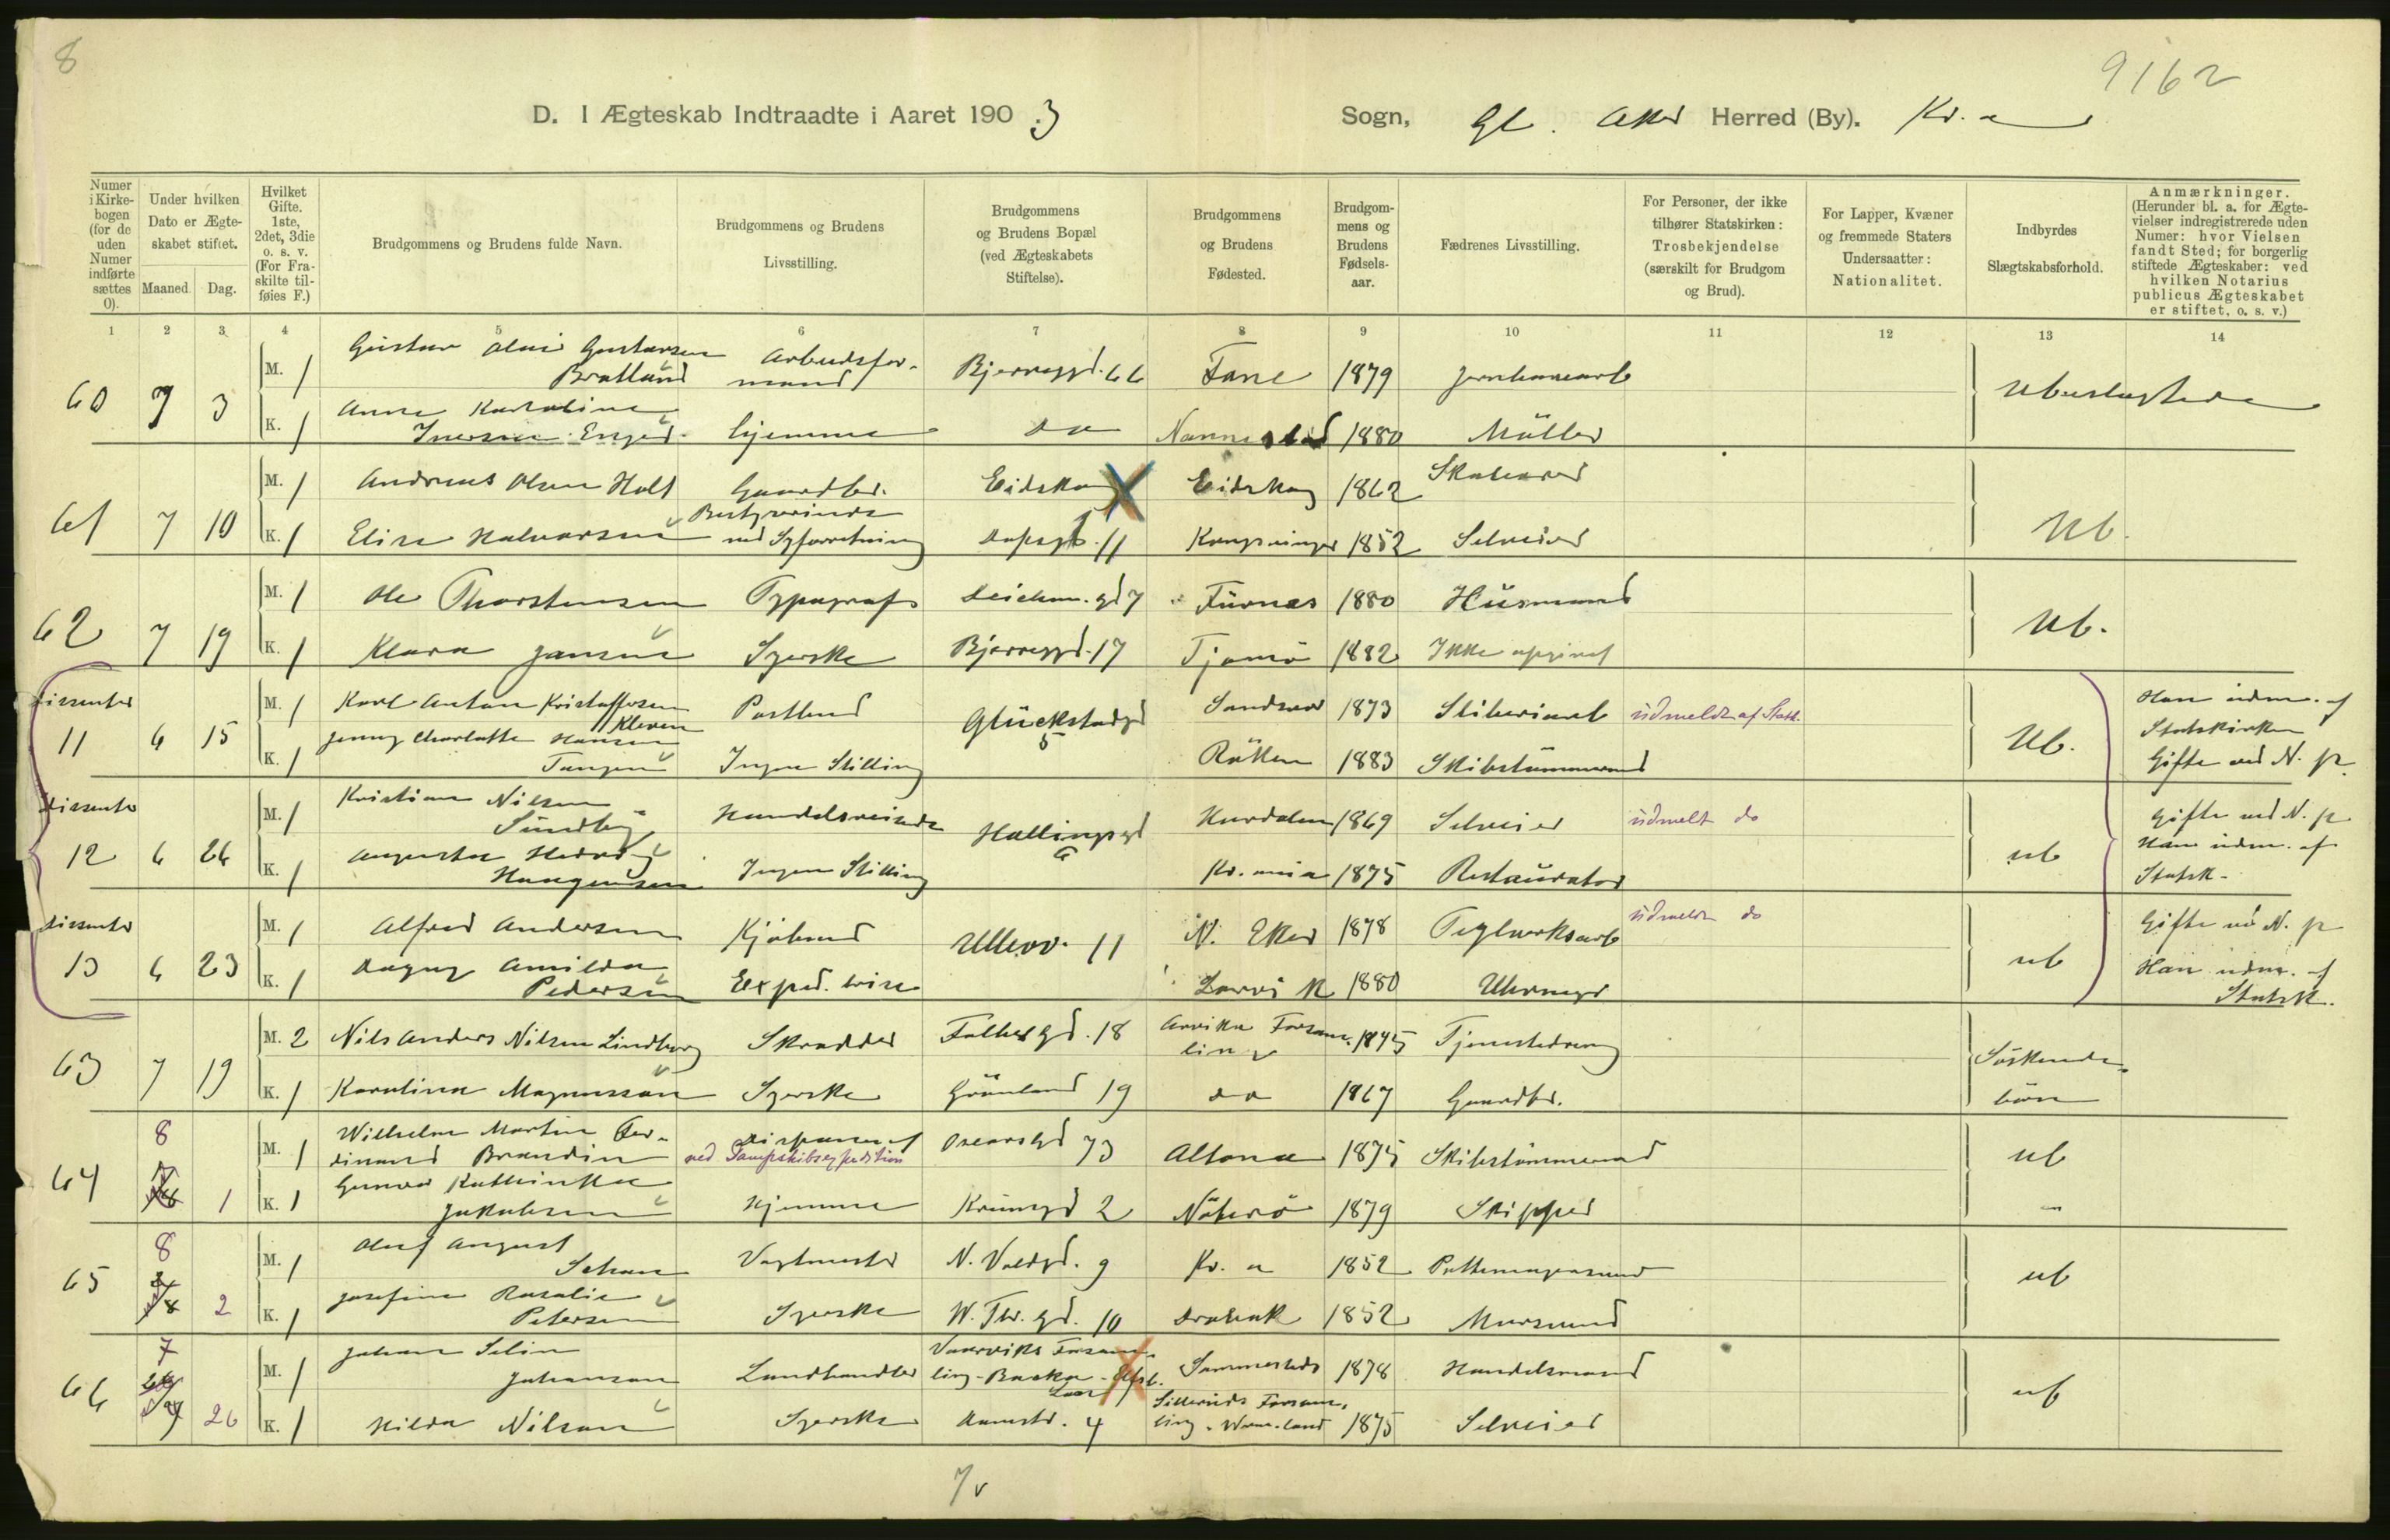 8
9162
D. I Ægteskab Indtraadte i Aaret 1903
Sogn, Gl. Aker Herred (By). Kr. a
Numer i Kirkebogen (for de uden Numer indførte sættes 0).
Under hvilken Dato er Ægteskabet stiftet.
Maaned. Dag.
Hvilket Gifte. 1ste, 2det, 3die o. s. v. (For Fraskilte tilføies F.)
Brudgommens og Brudens fulde Navn.
Brudgommens og Brudens Livsstilling.
Brudgommens og Brudens Bopæl (ved Ægteskabets Stiftelse).
Brudgommens og Brudens Fødested.
Brudgommens og Brudens Fødselsaar.
Fædrenes Livsstilling.
For Personer, der ikke tilhører Statskirken: Trosbekjendelse (særskilt for Brudgom og Brud).
For Lapper, Kvæner og fremmede Staters Undersaatter: Nationalitet.
Indbyrdes Slægtskabsforhold.
Anmærkninger. (Herunder bl. a. for Ægtevielser indregistrerede uden Numer: hvor Vielsen fandt Sted; for borgerlig stiftede Ægteskaber: ved hvilken Notarius publicus Ægteskabet er stiftet, o. s. v.)
1 2 3 4 5 6 7 8 9 10 11 12 13 14
60 7 3
M. 1 Gustav Gustavsen Bratland Arbeidsformand Bjerregd. 66 Fane 1879
K. 1 Anna Iversen hjemme do Nannestad 1880 Møller
Ubeslægtede
61 7 10
M. 1 Andreas Olsen Holt Gaardbr. Eidskog Eidskog 1862
K. 1 Elise Halvorsen Bestyrerinde ved Syforretning 11 Kongsvinger 1852 Selveier
Ub.
62 7 19
M. 1 Ole Thorstensen Typograf Deichm. gd 7 Furnes 1880 Husmand
K. 1 Klara Jansen Syerske Bjerregd. 17 Tjømø 1882 Ikke opgivet
Ub.
Dissenter
11 6 15
M. 1 Karl Anton Kristoffersen Kleven Postbud Glückstadgd 5 Sandsvær 1873 Sliberiarb udmeldt af Statsk.
K. 1 Jenny Charlotte Hansen Tangen Ingen Stilling Røken 1883 Skibstømmermand
Ub.
Han udm. af Statskirken
Gifte ved N. p.
Dissenter
12 6 26
M. 1 Kristian Nilsen Sundby Handelsreisende Hallingsgd 6 Hurdalen 1869 Selveier udmeldt do
K. 1 Augusta Hedvig Ingen Stilling Kr.ania 1875 Restauratør
ub
Gifte ved N. p
Han udm. af
Statsk.
Dissenter
13 6 23
M. 1 Alfred Andersen Kjøbmd Ullevv. 11 N. Eker 1878 Teglverksarb udmeldt do
K. 1 Dagny Amilda Pedersen Exped. trise Larvik 1880 Uhrmgr
ub
Gifte ved N. p
Han udm. af
Statsk.
63 7 19
M. 2 Nils Anders Nilsen Lindberg Skrædder Falbesgd. 18 Arvika Forsamling 1845 Tjenestedreng
K. 1 Karolina Magnusson Syerske Grønland 19 do 1867 Gaardbr.
Søskendebørn
64 8 1
M. 1 Wilhelm Martin Ferdinand Brandin Disponent ved Dampskibsexpedition Oscarsgd 73 Altona 1875 Skibstømmermand
K. 1 Gunvor Kathinka Jakobsen Hjemme Krumgd 2 Nøterø 1879 Skipper
ub
65 8 2
M. 1 Oluf August Vagtmester N. Voldgd. 9 Kr. a 1852 Pottemagersvend
K. 1 Josefine Rosalie Petersen Syerske W. Thr. gd. 10 Drøbak 1852 Mursvend
ub
66 7 26
M. 1 Johan Selin Johanson Landhandler Sammesteds 1878 Handelsmand
K. 1 Hilda Nilsson Syerske 4 Sillerud Forsamling. Werm.land 1875 Selveier
ub